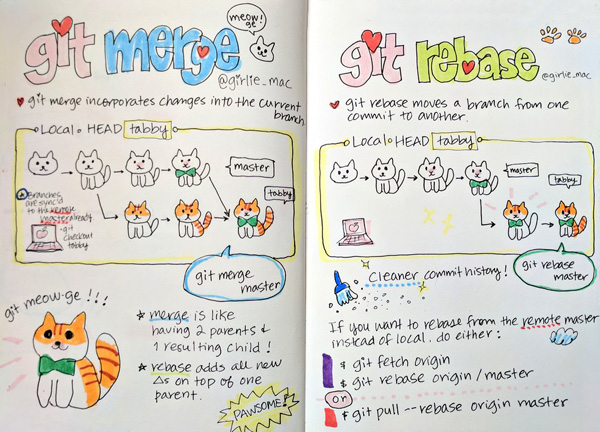 git merge
meow!
ge
@girlie_mac
git merge incorporates changes into the current
branch
Local HEAD tabby
master
tabby
Branches
are sync'd
to the remote
master already
git
checkout
tabby
git merge
master
git meow-ge !!!
merge is like
having 2 parents &
1 resulting child!
rebase adds all new
Δs on top of one
parent.
PAWSOME!
git rebase
@girlie_mac
git rebase moves a branch from one
commit to another.
Local HEAD tabby
master
tabby
git rebase
master
Cleaner commit history!
If you want to rebase from the remote master
instead of local, do either:
$ git fetch origin
$ git rebase origin/master
or
$ git pull --rebase origin master